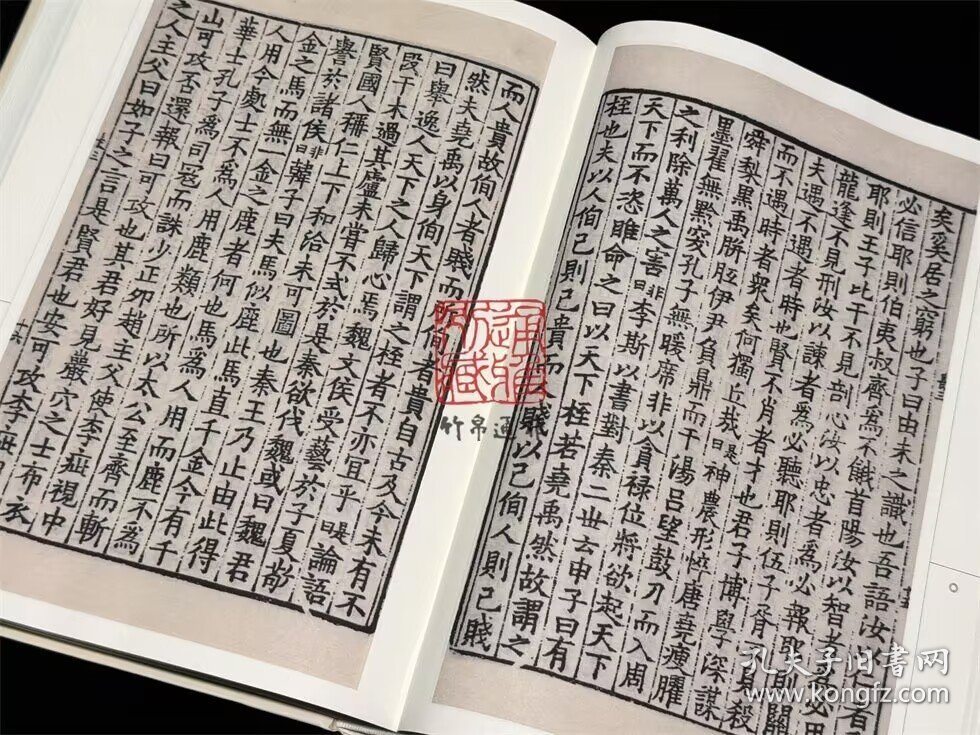 矣奚居之窮也子曰由未之識也吾語汝
必信耶則伯夷叔齊爲不餓首陽汝以智者
耶則王子比干不見剖心汝以忠者爲必報耶則關
龍逢不見刑汝以諫者爲必聽耶則伍子胥見殺
夫遇不遇者時也賢不肖者才也君子博學深謀
而不遇時者衆矣何獨丘哉是曰神農形悴唐堯瘦臞
舜梨黑禹胼胝伊尹負鼎而干湯呂望鼓刀而入周
墨翟無黔突孔子無暖席非以貪禄位將欲起天下
之利除萬人之害非曰李斯以書對秦二世云申子曰有
天下而不恣睢命之曰以天下桎若堯禹然故謂之
桎也夫以人徇己則己貴而賤以己徇人則己賤
而人貴故徇人者賤而徇者貴自古及今未有不
然夫堯禹以身徇天下謂之桎者不亦宜乎是曰論語
曰舉逸人天下之人歸心焉魏文侯受藝於子夏敬
段干木過其廬未嘗不式於是秦欲伐魏或曰魏君
賢國人稱仁上下和洽未可圖也秦王乃止由此得
譽於諸侯非曰韓子曰夫馬似鹿此馬直千金今有千
金之馬而無一金之鹿者何也馬爲人用而鹿不爲
人用今處士不爲人用鹿類也所以太公至齊而斬
華士孔子爲司寇而誅少正卯趙主父使李疵視中
山可攻否還報曰可攻也其君好見巖穴之士布衣
之人主父曰如子之言是賢君也安可攻李疵
竹帛通
孔夫子旧書网
www.kongfz.com